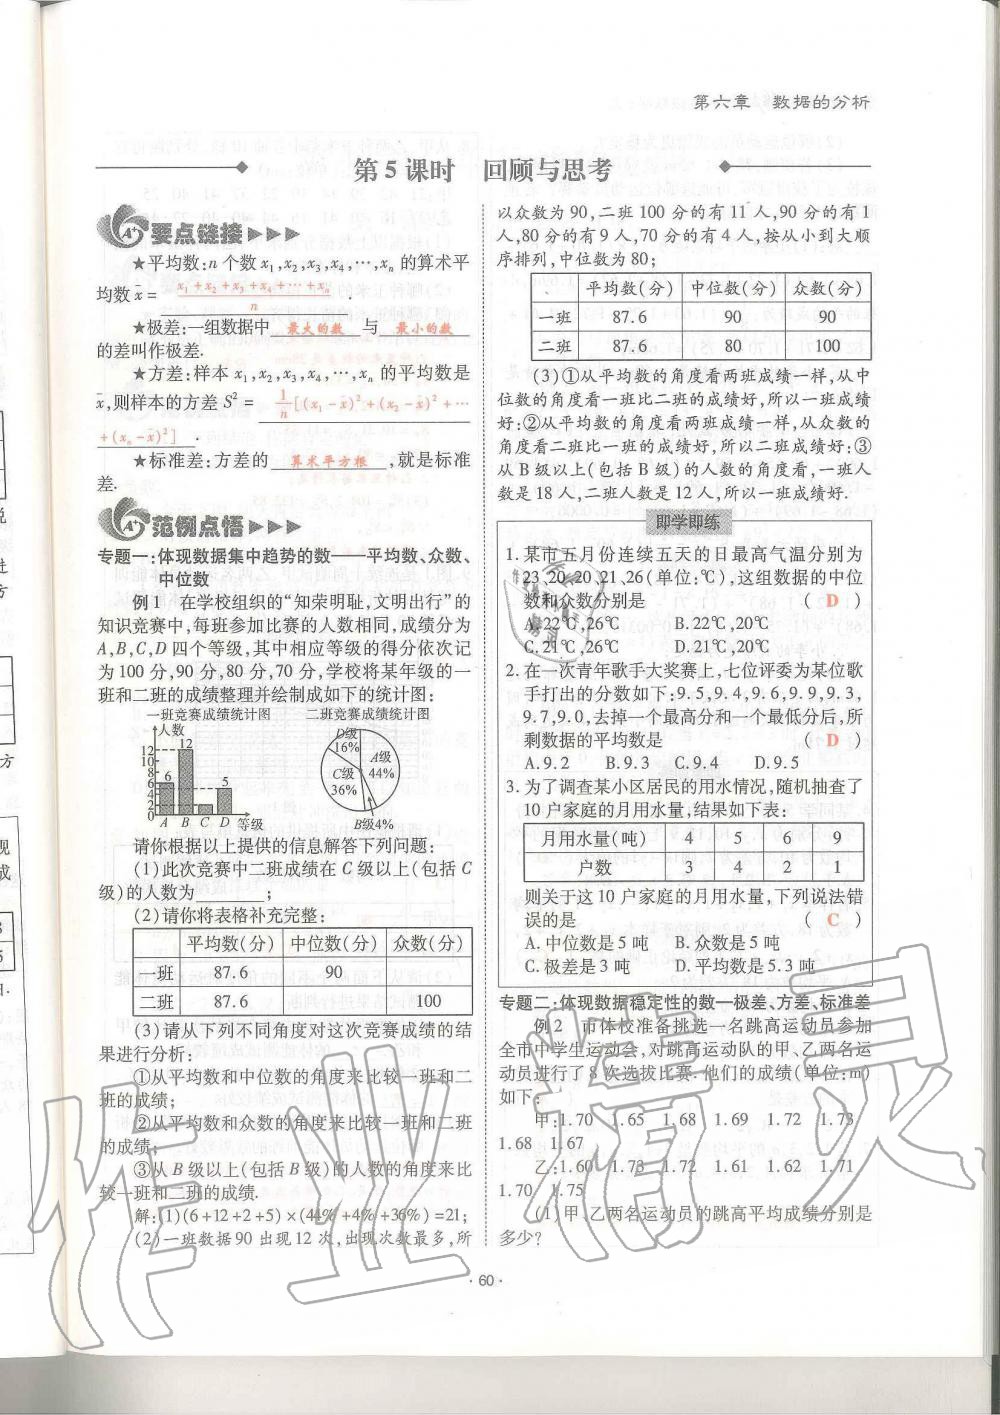 第六章　数据的分析
第5课时　回顾与思考
要点链接
★平均数:n个数x₁,x₂,x₃,x₄,…,xₙ的算术平
均数x̄= (x₁+x₂+x₃+x₄+…+xₙ)/n .
★极差:一组数据中 最大的数 与 最小的数
的差叫作极差.
★方差:样本x₁,x₂,x₃,x₄,…,xₙ的平均数是
x̄,则样本的方差S²= 1/n[(x₁-x̄)²+(x₂-x̄)²+…
+(xₙ-x̄)²] .
★标准差:方差的 算术平方根 ,就是标准
差.
范例点悟
专题一:体现数据集中趋势的数——平均数、众数、
中位数
例1　在学校组织的“知荣明耻,文明出行”的
知识竞赛中,每班参加比赛的人数相同,成绩分为
A,B,C,D四个等级,其中相应等级的得分依次记
为100分,90分,80分,70分,学校将某年级的一
班和二班的成绩整理并绘制成如下的统计图:
一班竞赛成绩统计图　二班竞赛成绩统计图
人数
12
10
8
6
4
2
0
6 12 2 5
A B C D 等级
D级
16%
A级
44%
C级
36%
B级4%
请你根据以上提供的信息解答下列问题:
(1)此次竞赛中二班成绩在C级以上(包括C
级)的人数为________;
(2)请你将表格补充完整:
平均数(分) 中位数(分) 众数(分)
一班 87.6 90
二班 87.6 100
(3)请从下列不同角度对这次竞赛成绩的结
果进行分析:
①从平均数和中位数的角度来比较一班和二
班的成绩;
②从平均数和众数的角度来比较一班和二班
的成绩;
③从B级以上(包括B级)的人数的角度来比
较一班和二班的成绩.
解:(1)(6+12+2+5)×(44%+4%+36%)=21;
(2)一班数据90出现12次,出现次数最多,所
以众数为90,二班100分的有11人,90分的有1
人,80分的有9人,70分的有4人,按从小到大顺
序排列,中位数为80;
平均数(分) 中位数(分) 众数(分)
一班 87.6 90 90
二班 87.6 80 100
(3)①从平均数的角度看两班成绩一样,从中
位数的角度看一班比二班的成绩好,所以一班成绩
好;②从平均数的角度看两班成绩一样,从众数的
角度看二班比一班的成绩好,所以二班成绩好;③
从B级以上(包括B级)的人数的角度看,一班人
数是18人,二班人数是12人,所以一班成绩好.
即学即练
1.某市五月份连续五天的日最高气温分别为
23,20,20,21,26(单位:℃),这组数据的中位
数和众数分别是 ( D )
A.22℃,26℃　B.22℃,20℃
C.21℃,26℃　D.21℃,20℃
2.在一次青年歌手大奖赛上,七位评委为某位歌
手打出的分数如下:9.5,9.4,9.6,9.9,9.3,
9.7,9.0,去掉一个最高分和一个最低分后,所
剩数据的平均数是 ( D )
A.9.2　B.9.3　C.9.4　D.9.5
3.为了调查某小区居民的用水情况,随机抽查了
10户家庭的月用水量,结果如下表:
月用水量(吨) 4 5 6 9
户数 3 4 2 1
则关于这10户家庭的月用水量,下列说法错
误的是 ( C )
A.中位数是5吨　B.众数是5吨
C.极差是3吨　D.平均数是5.3吨
专题二:体现数据稳定性的数—极差、方差、标准差
例2　市体校准备挑选一名跳高运动员参加
全市中学生运动会,对跳高运动队的甲、乙两名运
动员进行了8次选拔比赛.他们的成绩(单位:m)
如下:
甲:1.70　1.65　1.68　1.69　1.72　1.73
1.68　1.67
乙:1.60　1.73　1.72　1.61　1.62　1.71
1.70　1.75
(1)甲、乙两名运动员的跳高平均成绩分别是
多少?
·60·
作业精灵